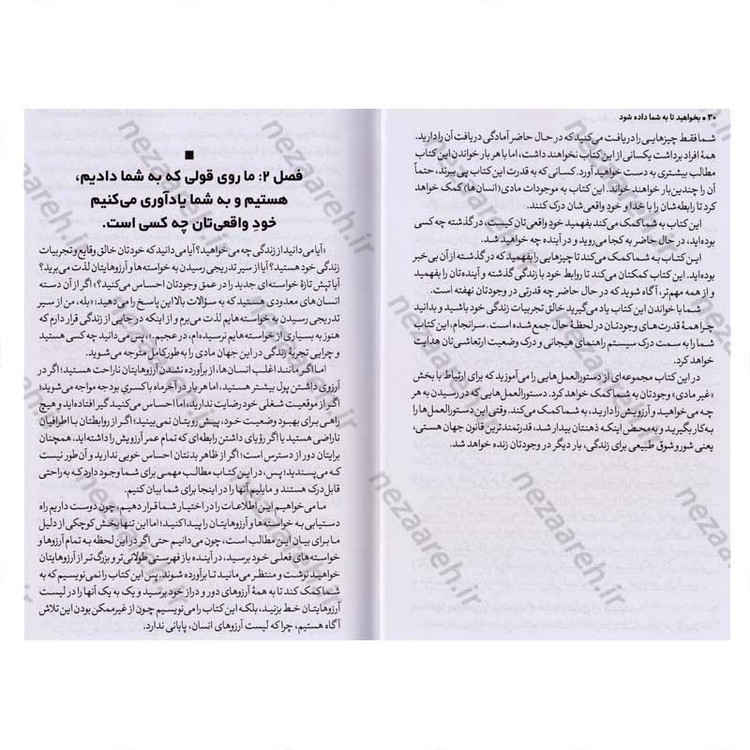 ۳۰ • بخواهید تا به شما داده شود
شما فقط چیزهایی را دریافت می‌کنید که در حال حاضر آمادگی دریافت آن را دارید.
همهٔ افراد برداشت یکسانی از این کتاب نخواهند داشت، اما با هر بار خواندن این کتاب
مطالب بیشتری به دست خواهید آورد. کسانی که به قدرت این کتاب پی ببرند، حتماً
آن را چندین بار خواهند خواند. این کتاب به موجودات مادی (انسان‌ها) کمک خواهد
کرد تا رابطه‌شان را با خدا و خودِ واقعی‌شان درک کنند.
این کتاب به شما کمک می‌کند بفهمید خودِ واقعی‌تان کیست، در گذشته چه کسی
بوده‌اید، در حال حاضر به کجا می‌روید و در آینده چه خواهید شد.
این کتاب به شما کمک می‌کند تا چیزهایی را بفهمید که در گذشته از آن بی‌خبر
بوده‌اید. این کتاب کمکتان می‌کند تا روابط خود با زندگی گذشته و آینده‌تان را بفهمید
و از همه مهم‌تر، آگاه شوید که در حال حاضر چه قدرتی در وجودتان نهفته است.
شما با خواندن این کتاب یاد می‌گیرید خالق تجربیات زندگی خود باشید و بدانید
چرا همهٔ قدرت‌های وجودتان در لحظهٔ حال جمع شده است. سرانجام، این کتاب
شما را به سمت درک سیستم راهنمای هیجانی و درک وضعیت ارتعاشی‌تان هدایت
خواهد کرد.
در این کتاب مجموعه‌ای از دستورالعمل‌هایی را می‌آموزید که برای ارتباط با بخش
«غیر مادی» وجودتان به شما کمک خواهد کرد. دستورالعمل‌هایی که در رسیدن به هر
چه می‌خواهید و آرزویش را دارید، به شما کمک می‌کند. وقتی این دستورالعمل‌ها را
به کار بگیرید و به محض اینکه ذهنتان بیدار شد، قدرتمندترین قانون جهان هستی،
یعنی شور و شوق طبیعی برای زندگی، بار دیگر در وجودتان زنده خواهد شد.
فصل ۲: ما روی قولی که به شما دادیم،
هستیم و به شما یادآوری می‌کنیم
خودِ واقعی‌تان چه کسی است.
«آیا می‌دانید از زندگی چه می‌خواهید؟ آیا می‌دانید که خودتان خالق وقایع و تجربیات
زندگی خود هستید؟ آیا از سیر تدریجی رسیدن به خواسته‌ها و آرزوهایتان لذت می‌برید؟
آیا تپش تازهٔ خواسته‌ای جدید را در عمق وجودتان احساس می‌کنید؟» اگر از آن دسته
انسان‌های معدودی هستید که به سؤالات بالا این پاسخ را می‌دهید: «بله، من از سیر
تدریجی رسیدن به خواسته‌هایم لذت می‌برم و از اینکه در جایی از زندگی قرار دارم که
هنوز به بسیاری از خواسته‌هایم نرسیده‌ام، در عجبم.»، پس می‌دانید چه کسی هستید
و چرایی تجربهٔ زندگی در این جهان مادی را به‌طور کامل متوجه می‌شوید.
اما اگر مانند اغلب انسان‌ها، از برآورده نشدن آرزوهایتان ناراحت هستید؛ اگر در
آرزوی داشتن پول بیشتر هستید، اما هر بار در آخر ماه با کسری بودجه مواجه می‌شوید؛
اگر از موقعیت شغلی خود رضایت ندارید، اما احساس می‌کنید گیر افتاده‌اید و هیچ
راهی برای بهبود وضعیت خود، پیش رویتان نمی‌بینید؛ اگر از روابطتان با اطرافیان
ناراضی هستید یا اگر رؤیای داشتن رابطه‌ای که تمام عمر آرزویش را داشته‌اید، همچنان
برایتان دور از دسترس است؛ اگر از ظاهر بدنتان احساس خوبی ندارید و آن‌طور نیست
که می‌پسندید؛ پس، در این کتاب مطالب مهمی برای شما وجود دارد که به راحتی
قابل درک هستند و مایلیم آنها را در اینجا برای شما بیان کنیم.
ما می‌خواهیم این اطلاعات را در اختیار شما قرار دهیم، چون دوست داریم راه
دستیابی به خواسته‌ها و آرزوهایتان را پیدا کنید؛ اما این تنها بخش کوچکی از دلیل
ما برای بیان این مطالب است، چون می‌دانیم حتی اگر در این لحظه به تمام آرزوها و
خواسته‌های فعلی خود برسید، در آینده باز فهرستی طولانی‌تر و بزرگ‌تر از آرزوهایتان
خواهید نوشت و منتظر می‌مانید تا برآورده شوند. پس این کتاب را نمی‌نویسیم که به
شما کمک کند تا به همهٔ آرزوهای دور و دراز خود برسید و یک به یک آنها را در لیست
آرزوهایتان خط بزنید، بلکه این کتاب را می‌نویسیم چون از غیرممکن بودن این تلاش
آگاه هستیم، چرا که لیست آرزوهای انسان، پایانی ندارد.
nezaareh.ir